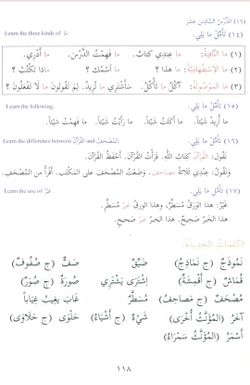 (١٤) تَأَمَّلْ مَا يَلِي. Learn the three kinds of مَا
(١) مَا النَّافِيَةُ: مَا عِنْدِي كِتَابٌ. مَا فَهِمْتُ الدَّرْسَ. مَا أَدْرِي.
(٢) مَا الاسْتِفْهَامِيَّةُ: مَا هَذَا؟ مَا اسْمُكَ؟ مَاذَا تَكْتُبُ؟
(٣) مَا الْمَوْصُولَةُ: آكُلُ مَا تَأْكُلُ. سَأَشْتَرِي مَا تُرِيدُ. لِمَ تَقُولُونَ مَا لَا تَفْعَلُونَ؟
(١٥) تَأَمَّلْ مَا يَلِي. Learn the following.
مَا أُرِيدُ شَيْئًا. مَا أَكَلْتُ شَيْئًا. مَا رَأَيْتُ شَيْئًا. مَا فَهِمْتُ شَيْئًا.
(١٦) تَأَمَّلْ مَا يَلِي. Learn the difference between الْقُرْآنُ and الْمُصْحَفُ
نَقُولُ: الْقُرْآنُ كِتَابُ اللَّهِ. قَرَأْتُ الْقُرْآنَ. أَحْفَظُ الْقُرْآنَ.
وَنَقُولُ: عِنْدِي ثَلَاثَةُ مَصَاحِفَ. وَضَعْتُ الْمُصْحَفَ عَلَى الْمَكْتَبِ. أَقْرَأُ مِنَ الْمُصْحَفِ.
(١٧) تَأَمَّلْ مَا يَلِي. Learn the use of غَيْرُ
غَيْرُ: هَذَا الْوَرَقُ مُسَطَّرٌ، وَهَذَا الْوَرَقُ غَيْرُ مُسَطَّرٍ.
هَذَا الْخَبَرُ صَحِيحٌ. هَذَا الْخَبَرُ غَيْرُ صَحِيحٍ.
الْكَلِمَاتُ الْجَدِيدَةُ:
نَمُوذَجٌ (ج نَمَاذِجُ) ضَيِّقٌ صَفٌّ (ج صُفُوفٌ)
قُمَاشٌ (ج أَقْمِشَةٌ) اشْتَرَى يَشْتَرِي صُورَةٌ (ج صُوَرٌ)
مُصْحَفٌ (ج مَصَاحِفُ) مُسَطَّرٌ غَابَ يَغِيبُ غِيَابًا
آخَرُ (الْمُؤَنَّثُ أُخْرَى) شَيْءٌ (ج أَشْيَاءُ) حَلْوَى (ج حَلَاوَى)
أَسْمَرُ (الْمُؤَنَّثُ سَمْرَاءُ)
١١٨